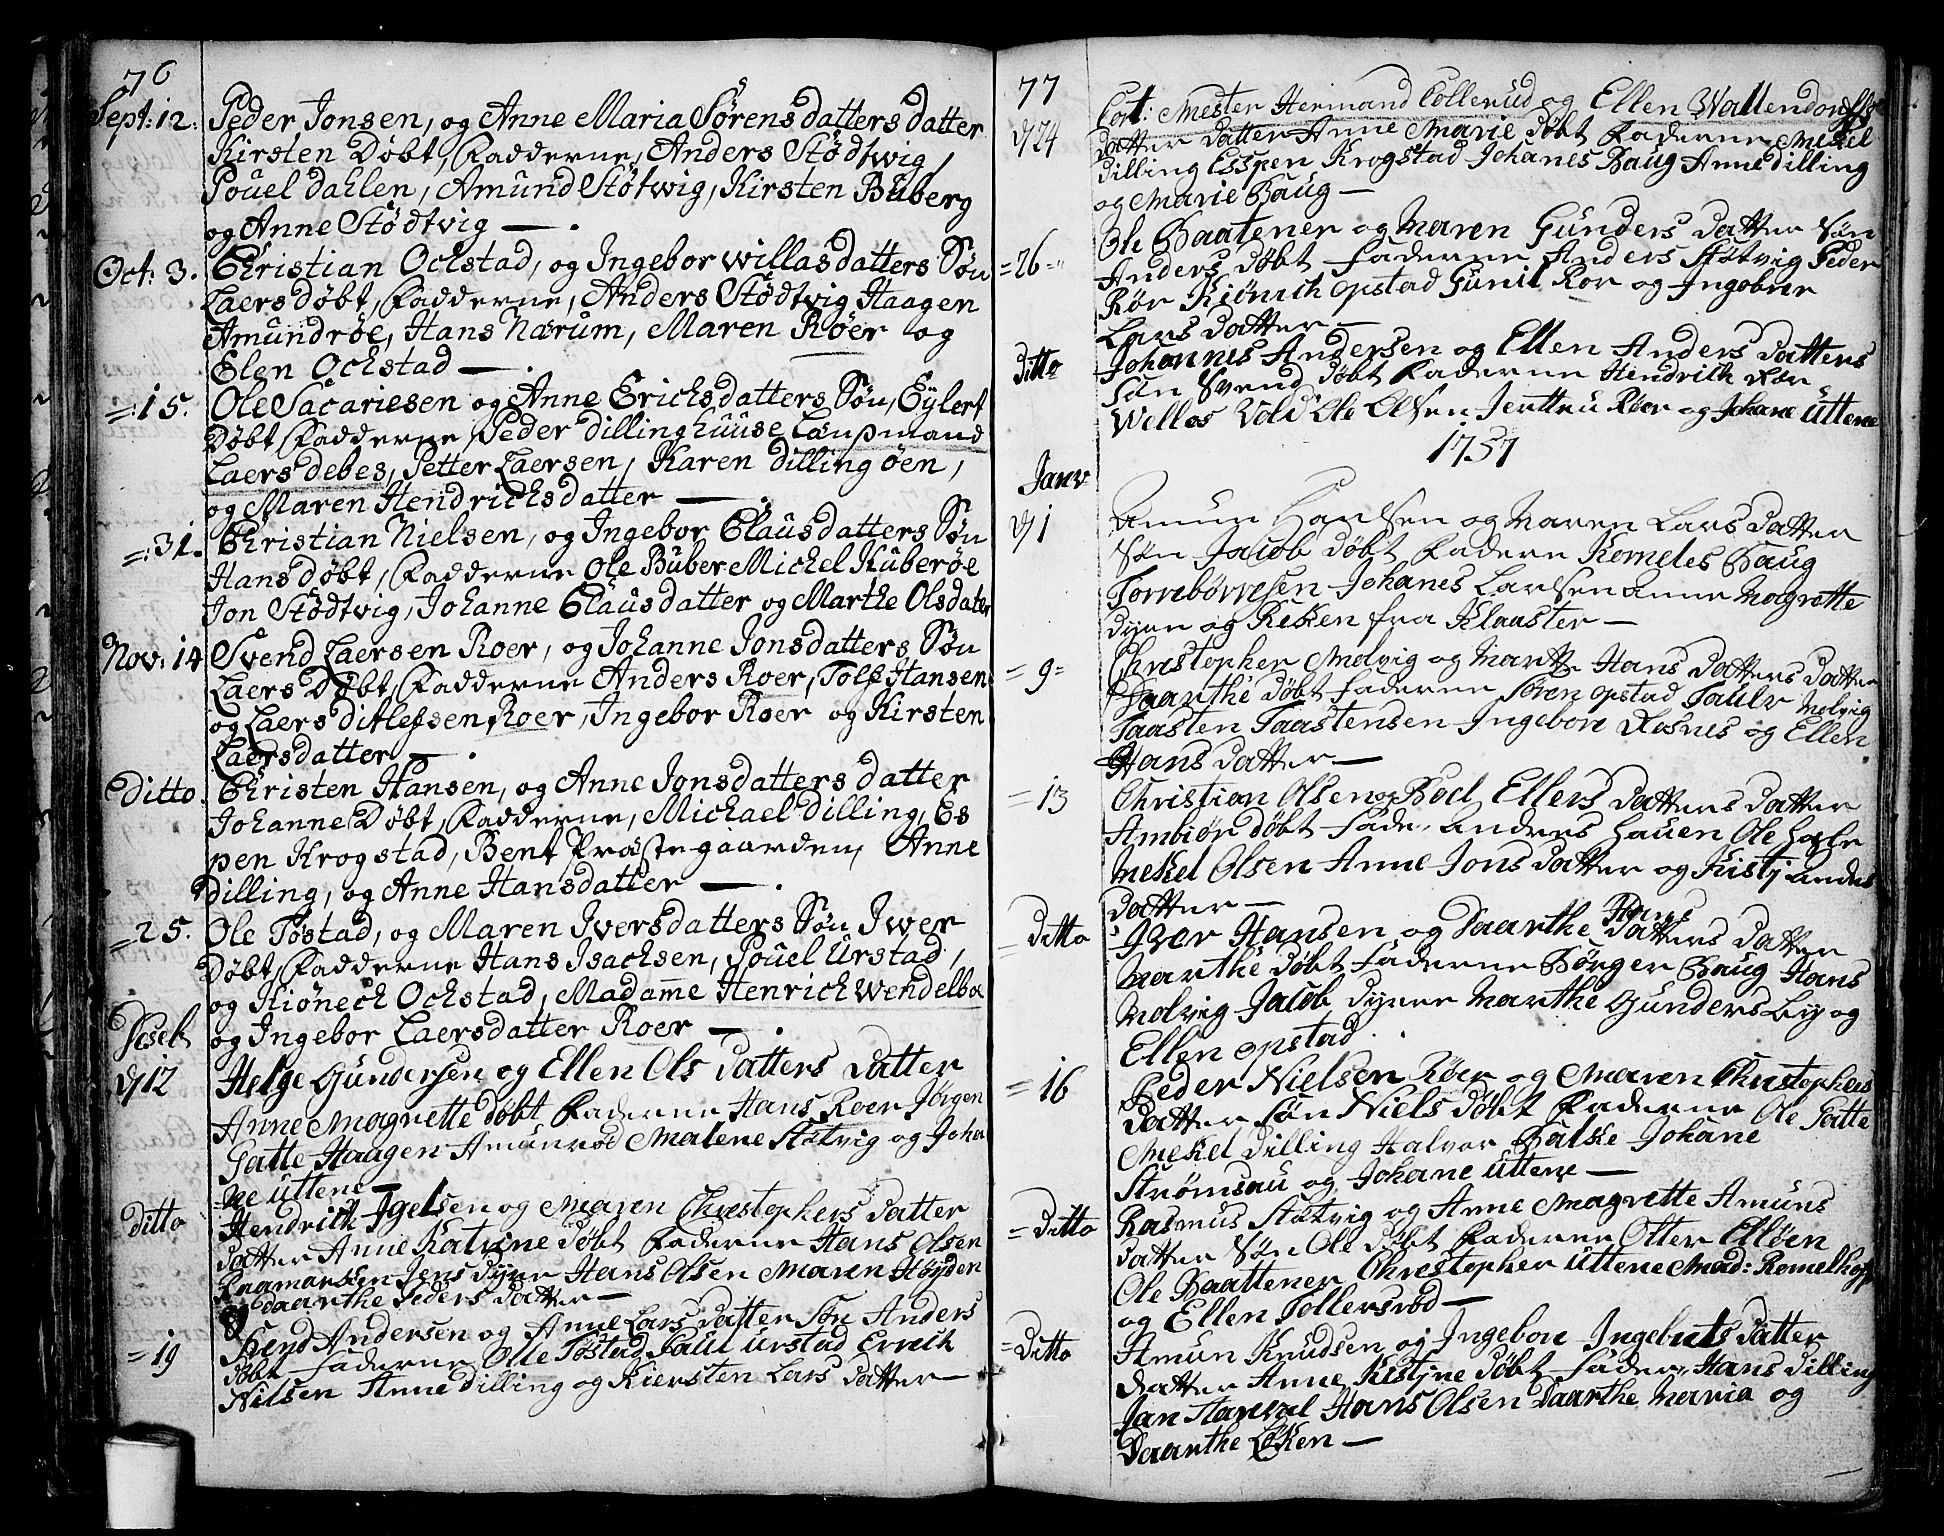 76
Sept: 12. Peder Jonsen, og Anne Maria Sörens datters datter
Kirsten Döbt, Fadderne, Anders Stödtwig,
Pouel dahlen, Amund Stötwig, Kirsten Buberg
og Anne Stödtvig — .
Oct: 3. Christian Ockstad, og Ingebor Willasdatters Sön
Laers döbt, Fadderne, Anders Stödtvig Haagen
Amundröe, Hans Nærum, Maren Röer og
Elen Ockstad — .
=: 15. Ole Sacariesen og Anne Erichsdatters Sön, Eylert
Döbt, Fadderne Peder dillinghuuse Læupmand
Laers debes, Petter Laersen, Karen dilling öen,
og Maren Hendrichsdatter — .
=: 31. Christian Nielsen, og Ingebor Clausdatters Sön
Hans döbt, Fadderne Ole Buber Michel Kuberöe
Jon Stödtvig, Johanne Clausdatter og Marthe Olsdater
Nov: 14 Svend Laersen Roer, og Johanne Jonsdatters Sön
Laers Döbt, Fadderne Anders Roer, Tolf Hansen
og Laers ditlefsen Roer, Ingebor Roer og Kirsten
Laersdatter — .
Ditto. Christen Hansen, og Anne Jonsdatters datter
Johanne Döbt, Fadderne, Michael Dilling, Es
pen Krogstad, Bent Præstegaarden, Anne
Dilling, og Anne Hansdatter — .
= 25. Ole Töstad, og Maren Iversdatters Sön Iwer
Döbt, Fadderne Hans Isachsen, Pouel Urstad,
og Kiöneck Ockstad, Madame Henrich Wendelboe
og Ingebor Laersdatter Roer — .
Deseb
d/12 Helge Gundersen og Ellen Ols datters datter
Anne Magrette döbt Faderne Hans Roer Jörgen
Gatte Haagen Amunröd Malene Stötvig og Joha
ne Uttene —
Ditto Hendrich Igelsen og Maren Chrestophers datter
datter Anne Katrine döbt Faderne Hans Olsen
Raamarksen Jens dyrer Hans Olsen Maren Höyden
og daarthe Peders datter —
= 19 Svend Andersen og Anne Lars datter Sön Anders
döbt Faderne Olle Töstad Paul Urstad Errick
Nilsen Anne dilling og Kiersten Lars datter —
77
d/24 Cort: Mester Hermand Collerud og Ellen Wallendorffs
datter datter Anne Marie döbt Faderne Mekel
dilling Esspen Krogstad Johanes Haug Anne dilling
og Marie Haug —
= 26 = Ole Baatener og Maren Gunders datter Sön
Anders döbt Faderne Anders Stötvig Peder
Rör Kiönich opstad Gunil Ror og Ingobrer
Lars datter —
Ditto Johannes Andersen og Ellen Anders datters
Sön Svend döbt Faderne Hendrich Rör
Wellos Vold Ole Olsen Jerttru Röer og Johane Uttene
1757
Janv
d/1 Amun Hansen og Maren Lars datter
Sön Jacob döbt Fadern Korneles Haug
Torrebörresen Johanes Larsen Anne Magrette
dyrer og Reken fra Klaaster —
= 9 = Chrestopher Melvig og Marthe Hans datters datter
Daarthe döbt Faderne Sören opstad Paulr Melvig
Taasten Taastensen Ingebore Rosnes og Ellen
Hans datter —
= 13 Christian Olsen og Bod. Ellers datters datter
Ambiör döbt Fade. Anders Hauen Ole Hole
Mekel Olsen Anne Jons datter og Kistj andes
datter —
= Ditto Iver Hansen og Daarthe Hans datters datter
Marthe döbt Faderne Börger Haug Hans
Melvig Jacob dyrer Marthe Gunders By og
Ellen opstad.
= 16 Peder Nielsen Röer og Maren Chrestophers
datter Sön Niels döbt Faderne Ole Gatte
Mekel dilling Halvor Balke Johane
Strömsau og Johane Uttene —
= Ditto Rasmus Stötvig og Anne Magrette Amuns
datter Sön Ole döbt Faderne Otter Ellöen
Ole Baattener Chrestopher Uttene Mad: Romelhoff
og Ellen Tollersröd —
= Ditto Amun Knudsen og Ingebore Ingebrets datter
datter Anne Kistine döbt Fader Hans dilling
Jan Stamsal Hans Olsen Daarthe Maria og
Daarthe Löken —